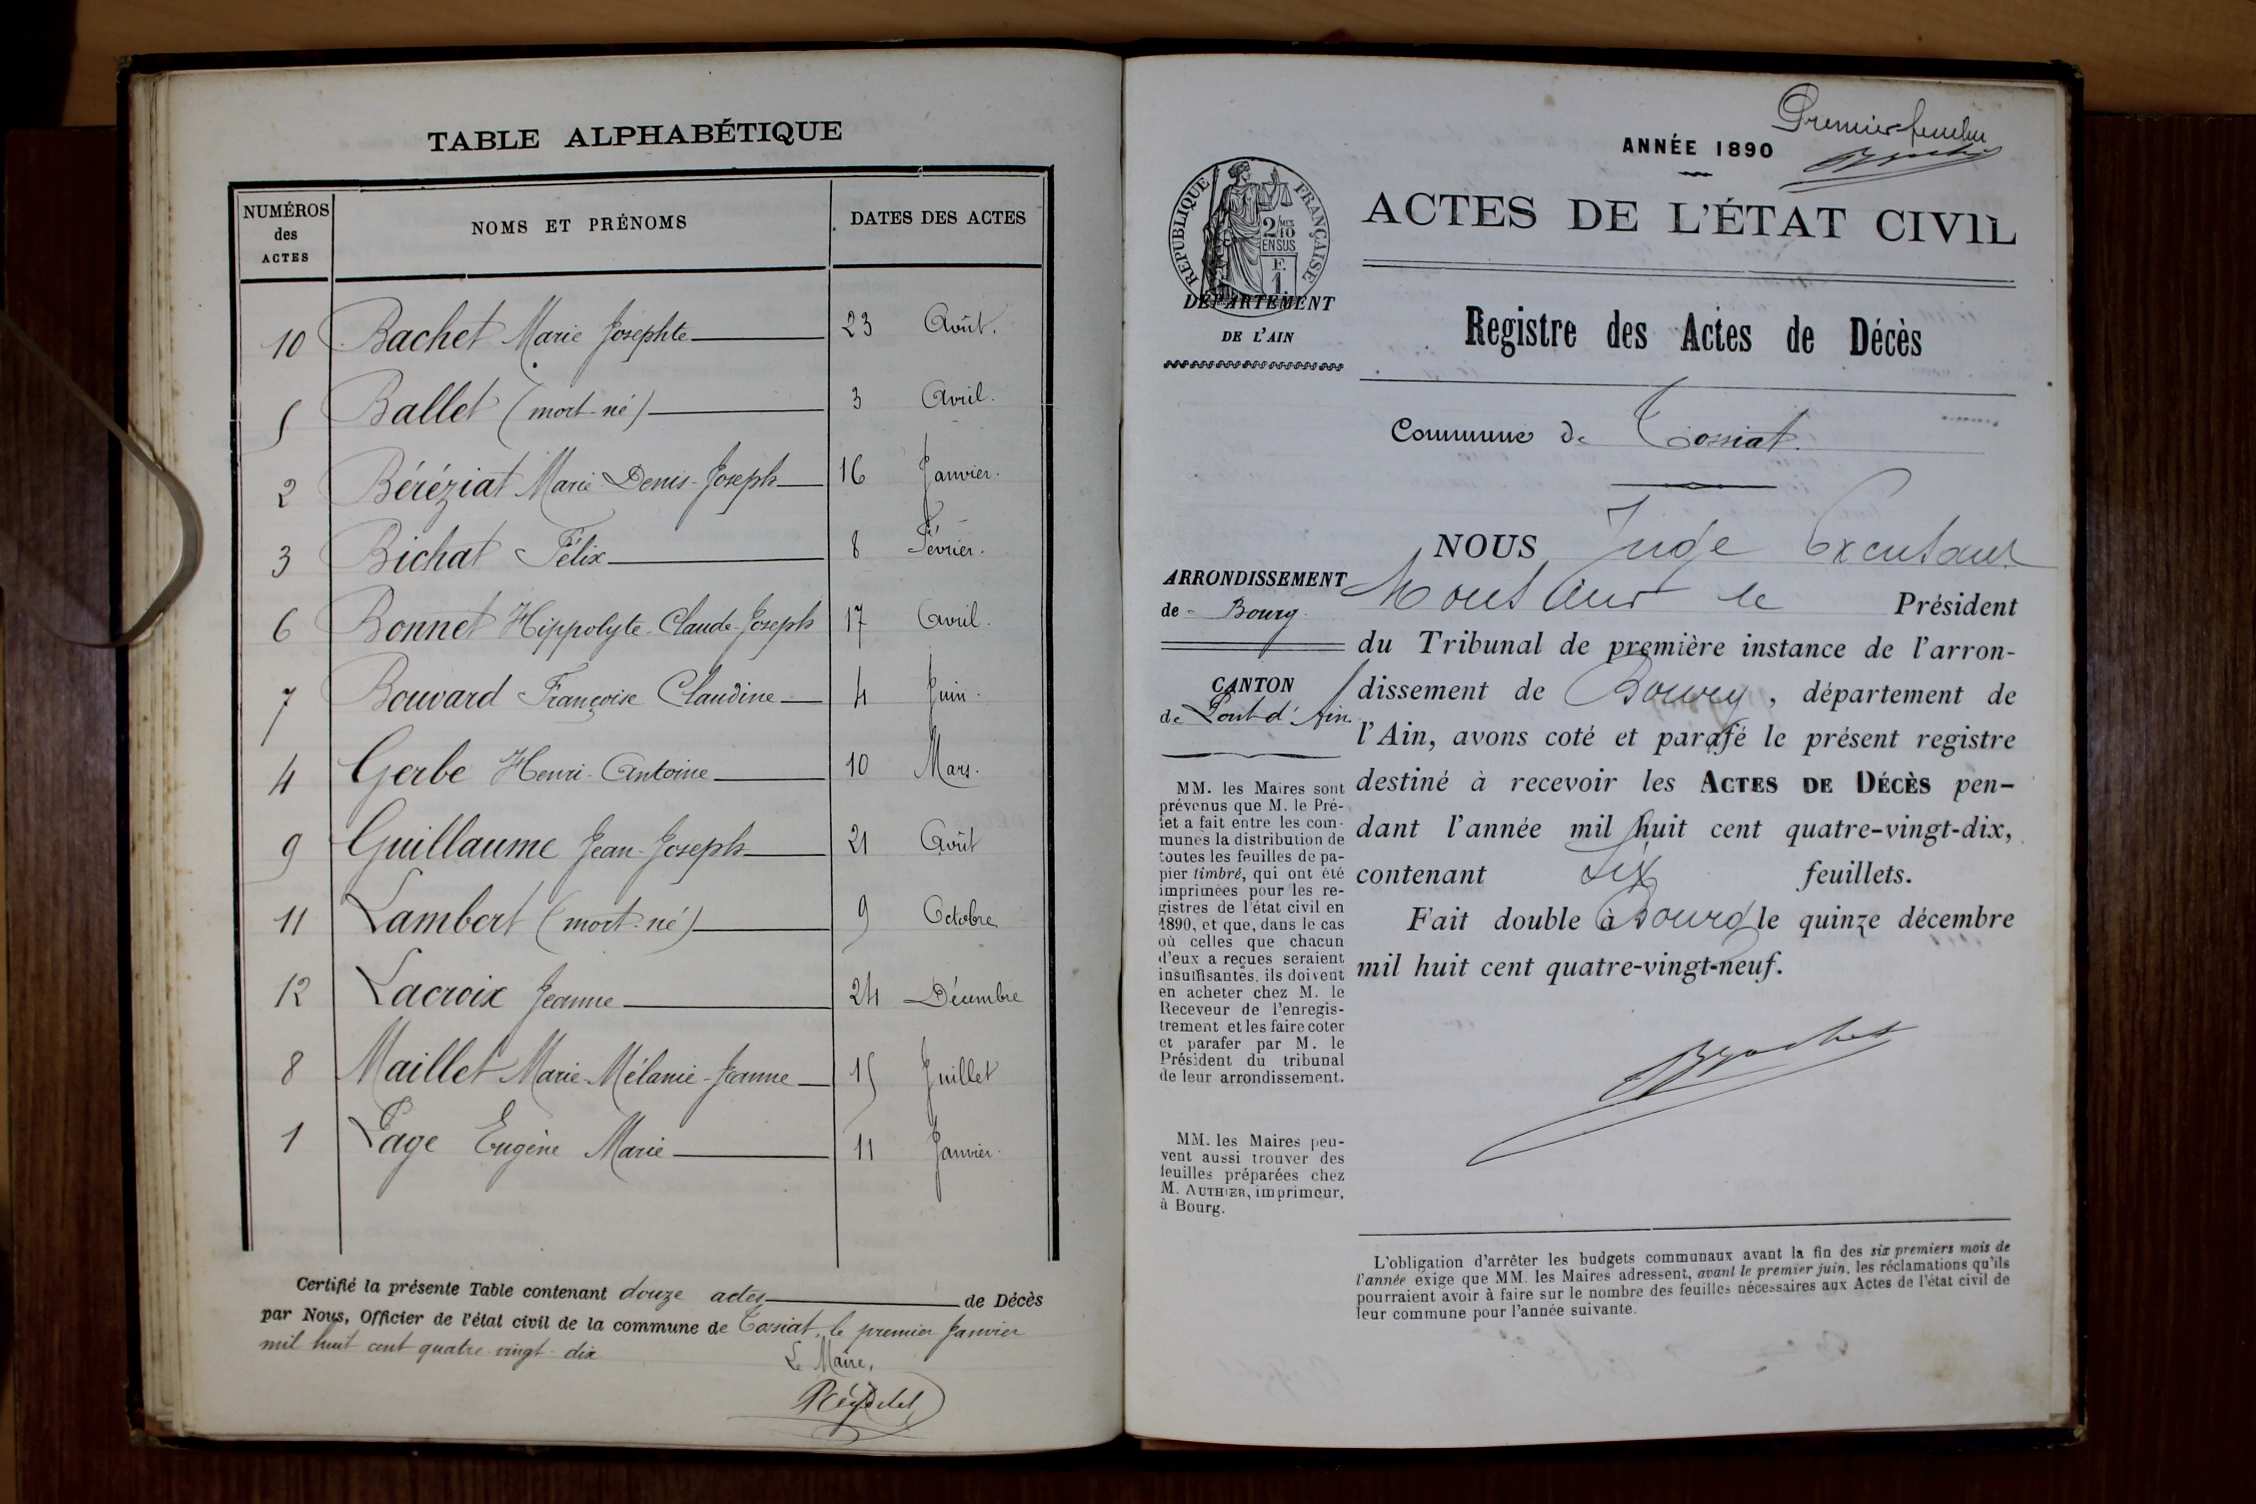 TABLE ALPHABÉTIQUE
NUMÉROS des ACTES
NOMS ET PRÉNOMS
DATES DES ACTES
10 Bachet Marie Josephte 23 Août.
5 Ballet (mort-né) 3 Avril.
2 Béréziat Marie Denis-Joseph 16 Janvier.
3 Bichat Félix 8 Février.
6 Bonnet Hippolyte-Claude-Joseph 17 Avril.
7 Bouvard Françoise Claudine 4 Juin.
4 Gerbe Henri-Antoine 10 Mars.
9 Guillaume Jean-Joseph 21 Août
11 Lambert (mort-né) 9 Octobre
12 Lacroix Jeanne 24 Décembre
8 Maillet Marie-Mélanie-Jeanne 15 Juillet
1 Page Eugène Marie 11 Janvier.
Certifié la présente Table contenant douze actes de Décès
par Nous, Officier de l'état civil de la commune de Tossiat, le premier Janvier
mil huit cent quatre-vingt-dix
Le Maire,
Premier feuillet
ANNÉE 1890
RÉPUBLIQUE FRANÇAISE
2/10 EN SUS
F. 1.
ACTES DE L'ÉTAT CIVIL
DÉPARTEMENT
DE L'AIN
Registre des Actes de Décès
Commune de Tossiat.
NOUS Juge
ARRONDISSEMENT
de Bourg.
CANTON
de Pont-d'Ain.
le Président
du Tribunal de première instance de l'arron-
dissement de Bourg, département de
l'Ain, avons coté et parafé le présent registre
destiné à recevoir les ACTES DE DÉCÈS pen-
dant l'année mil huit cent quatre-vingt-dix,
contenant six feuillets.
Fait double à Bourg le quinze décembre
mil huit cent quatre-vingt-neuf.
MM. les Maires sont
prévenus que M. le Pré-
fet a fait entre les com-
munes la distribution de
toutes les feuilles de pa-
pier timbré, qui ont été
imprimées pour les re-
gistres de l'état civil en
1890, et que, dans le cas
où celles que chacun
d'eux a reçues seraient
insuffisantes, ils doivent
en acheter chez M. le
Receveur de l'enregis-
trement et les faire coter
et parafer par M. le
Président du tribunal
de leur arrondissement.
MM. les Maires peu-
vent aussi trouver des
feuilles préparées chez
M. AUTHIER, imprimeur,
à Bourg.
L'obligation d'arrêter les budgets communaux avant la fin des six premiers mois de
l'année exige que MM. les Maires adressent, avant le premier juin, les réclamations qu'ils
pourraient avoir à faire sur le nombre des feuilles nécessaires aux Actes de l'état civil de
leur commune pour l'année suivante.